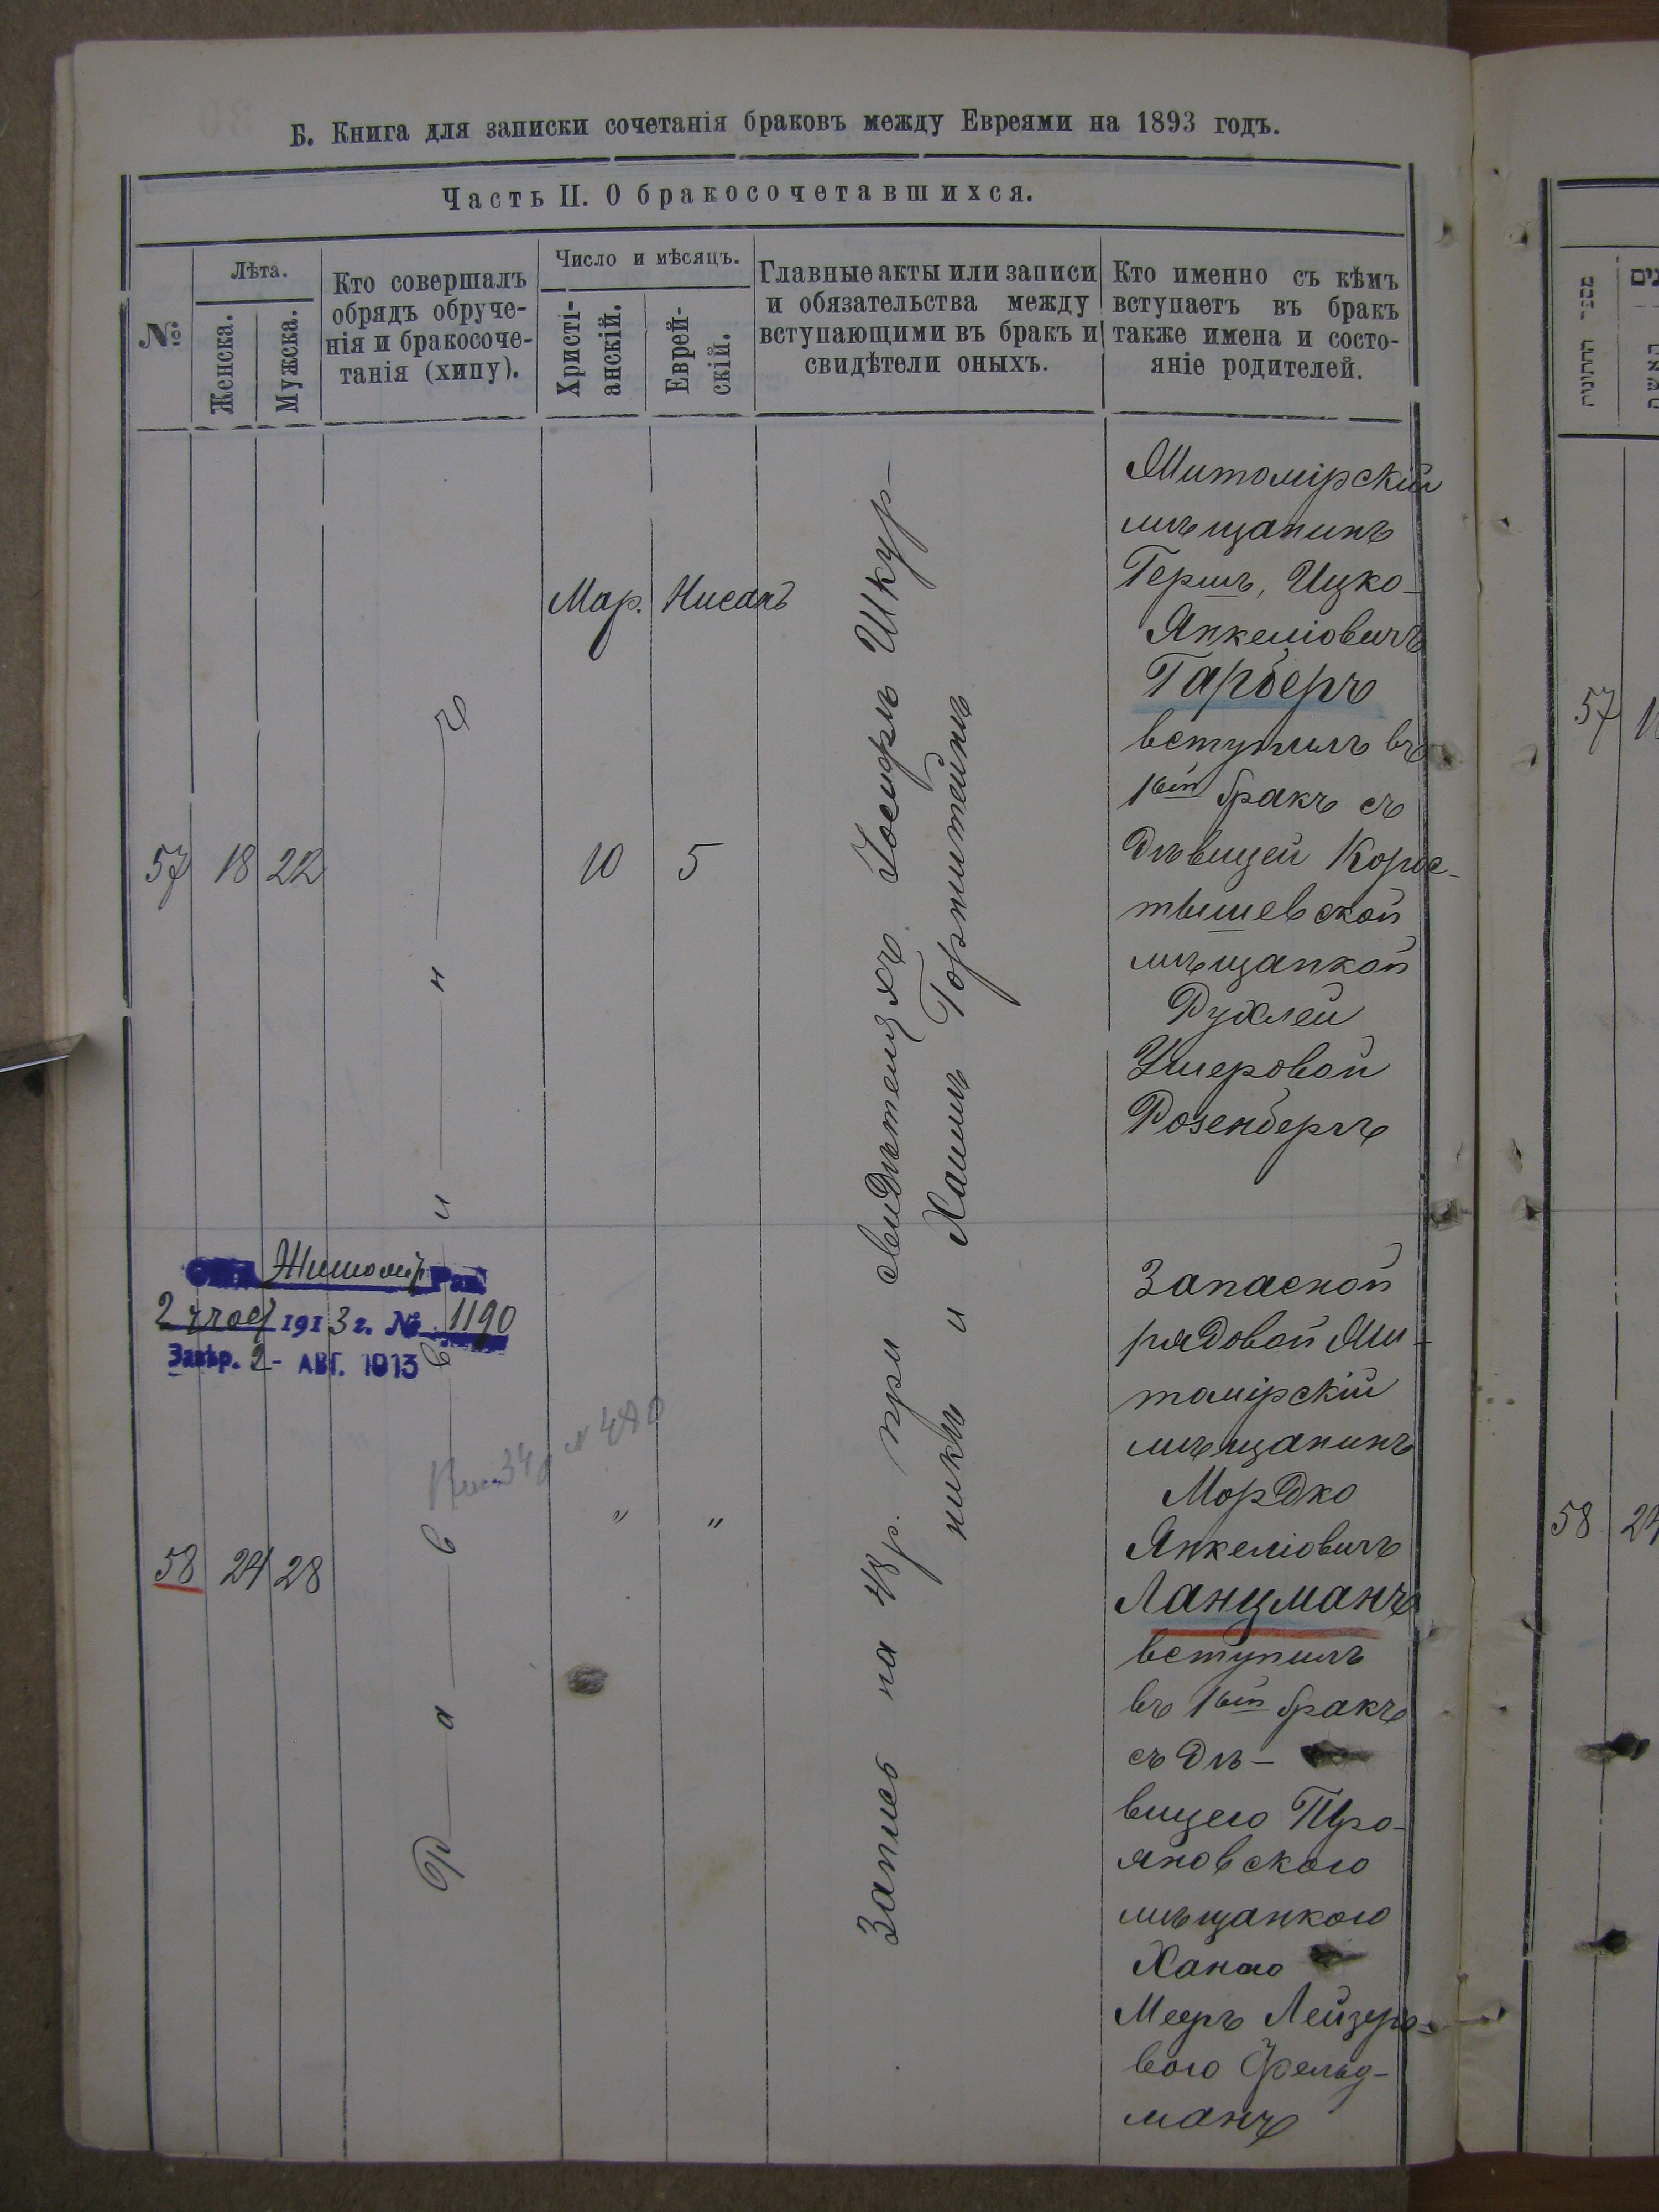 Б. Книга для записки сочетанія браковъ между Евреями на 1893 годъ.
Часть II. О бракосочетавшихся.
№
Лѣта.
Женска.
Мужска.
Кто совершалъ
обрядъ обруче-
нія и бракосоче-
танія (хипу).
Число и мѣсяцъ.
Христі-
анскій.
Еврей-
скій.
Главные акты или записи
и обязательства между
вступающими въ бракъ и
свидѣтели оныхъ.
Кто именно съ кѣмъ
вступаетъ въ бракъ
также имена и состо-
яніе родителей.
Мар. Нисанъ
57 18 22
10 5
Р а в в и н ъ
Запись на 48 р. при свидѣтеляхъ Іосифъ Шкур-
никъ и Хаимъ Горнштейнъ
Житомірскій
мѣщанинъ
Гершъ, Ицко-
Янкеліовичъ
Гарберъ
вступилъ въ
1ый бракъ съ
дѣвицей Корос-
тышевской
мѣщанкой
Рухлей
Ушеровой
Розенбергъ
Житомір
1913 г. № 1190
Завѣр. 2 - АВГ. 1913
58 24 28
" "
Запасной
рядовой Жи-
томірскій
мѣщанинъ
Мордко
Янкеліовичъ
Ланцманъ
вступилъ
въ 1ый бракъ
съ дѣ-
вицею Тро-
яновскою
мѣщанкою
Ханою
Мееръ Лейзеро-
вою Фельд-
манъ
57
58 24